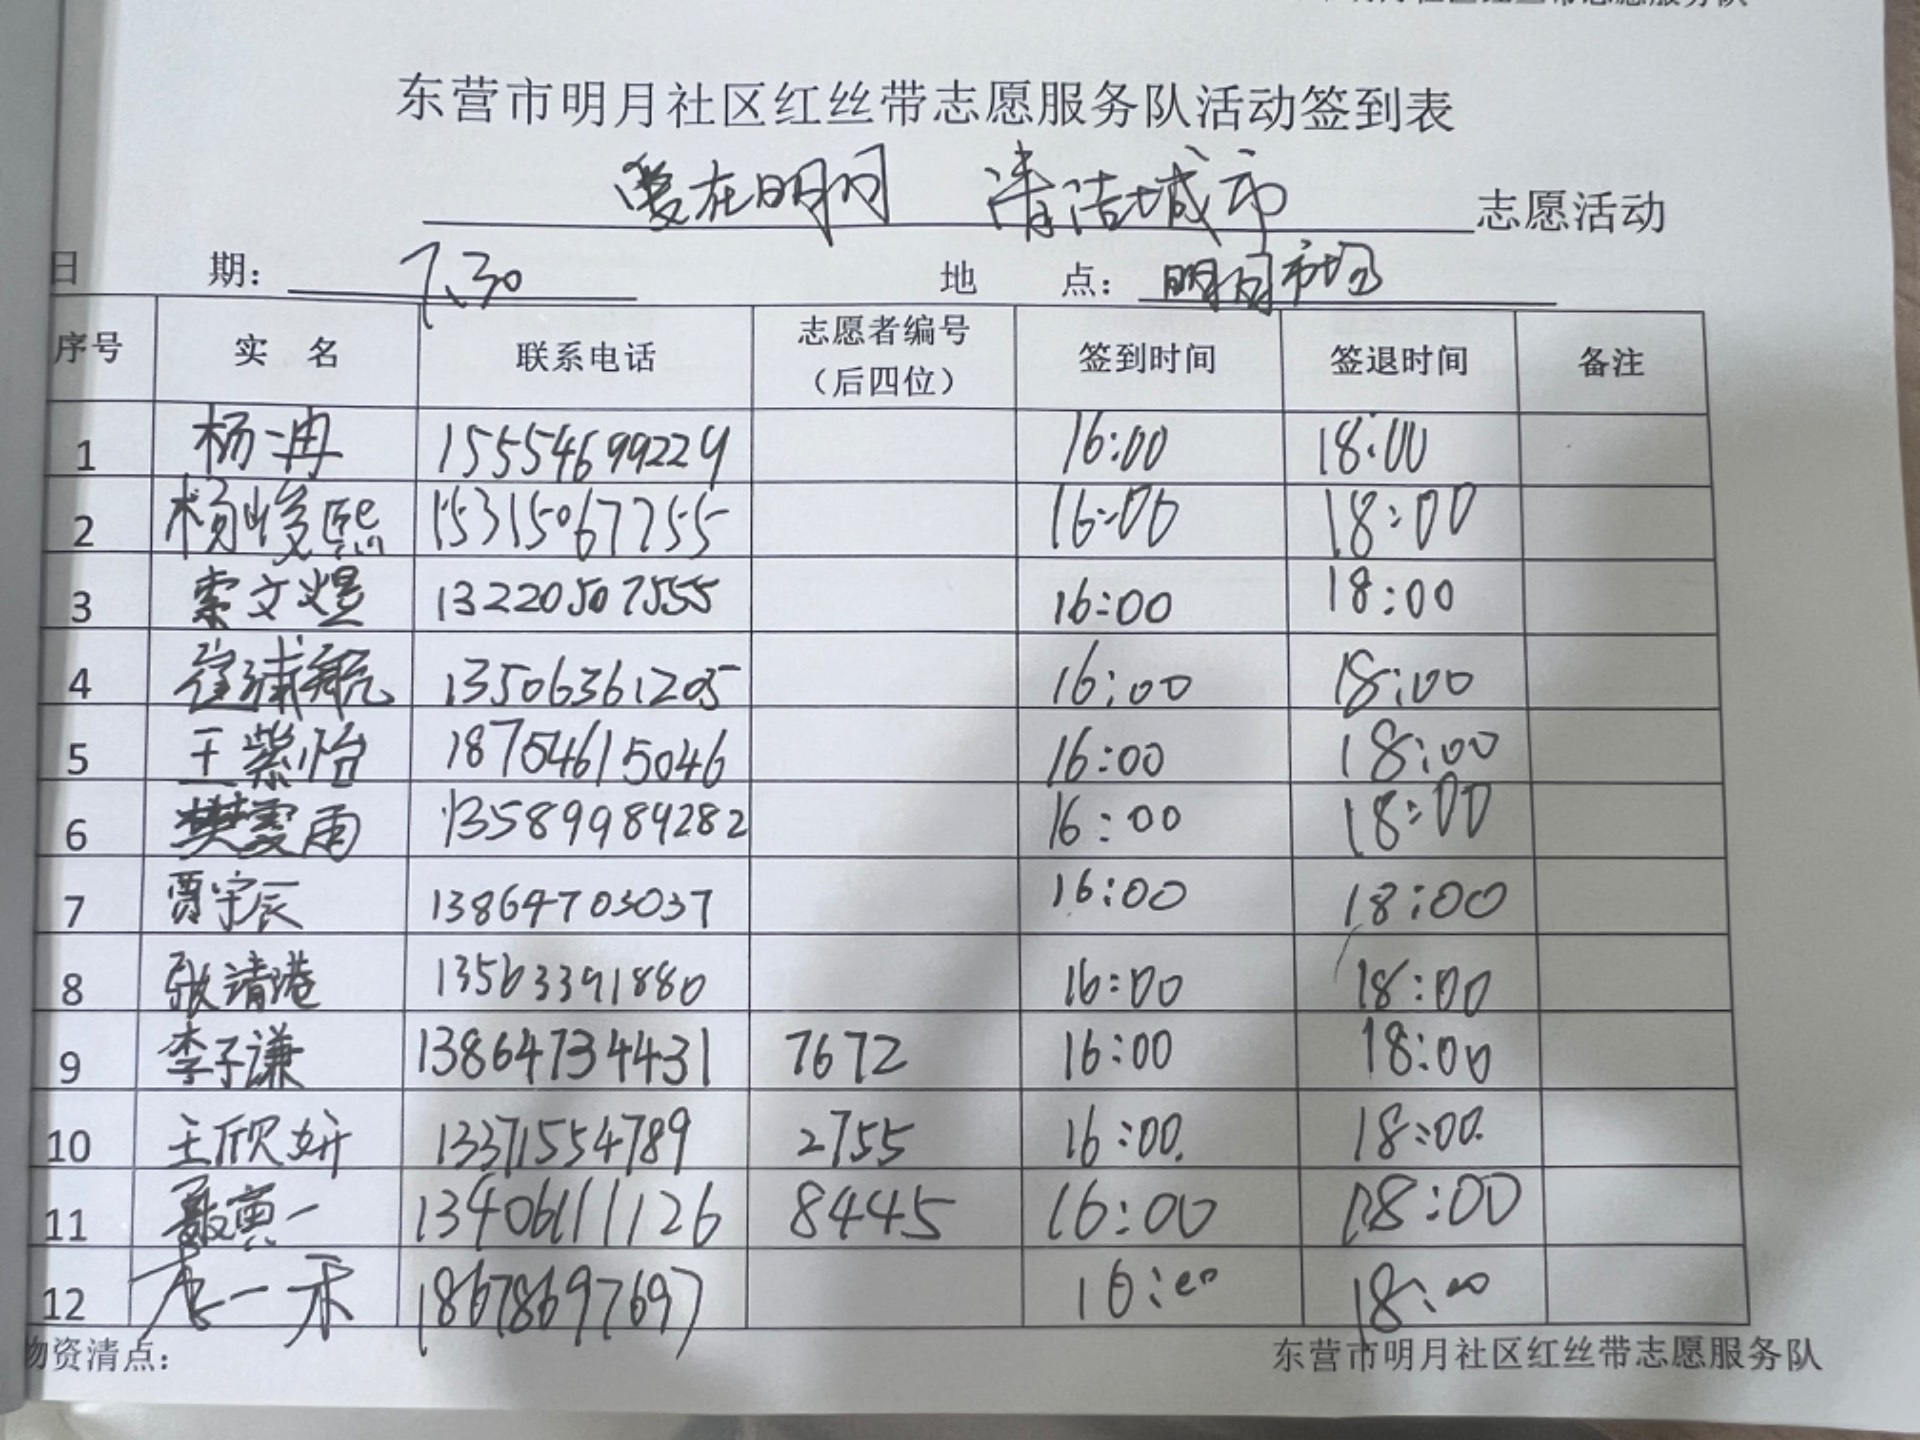 东营市明月社区红丝带志愿服务队活动签到表
爱在明月 清洁城市 志愿活动
日 期： 7、30 地 点： 明月
序号 实 名 联系电话 志愿者编号（后四位） 签到时间 签退时间 备注
1 杨冉 15554699229 16:00 18:00
2 杨峻熙 15315067755 16:00 18:00
3 索文煜 13220507555 16:00 18:00
4 崔浦航 13506361205 16:00 18:00
5 王紫怡 18754615046 16:00 18:00
6 樊雯雨 13589989282 16:00 18:00
7 贾宇辰 13864703037 16:00 18:00
8 张清港 13563391880 16:00 18:00
9 李子谦 13864734431 7672 16:00 18:00
10 王欣妍 13371554789 2755 16:00. 18:00.
11 聂寅一 13406111126 8445 16:00 18:00
12 一禾 18678697697 16:00 18:00
物资清点：
东营市明月社区红丝带志愿服务队